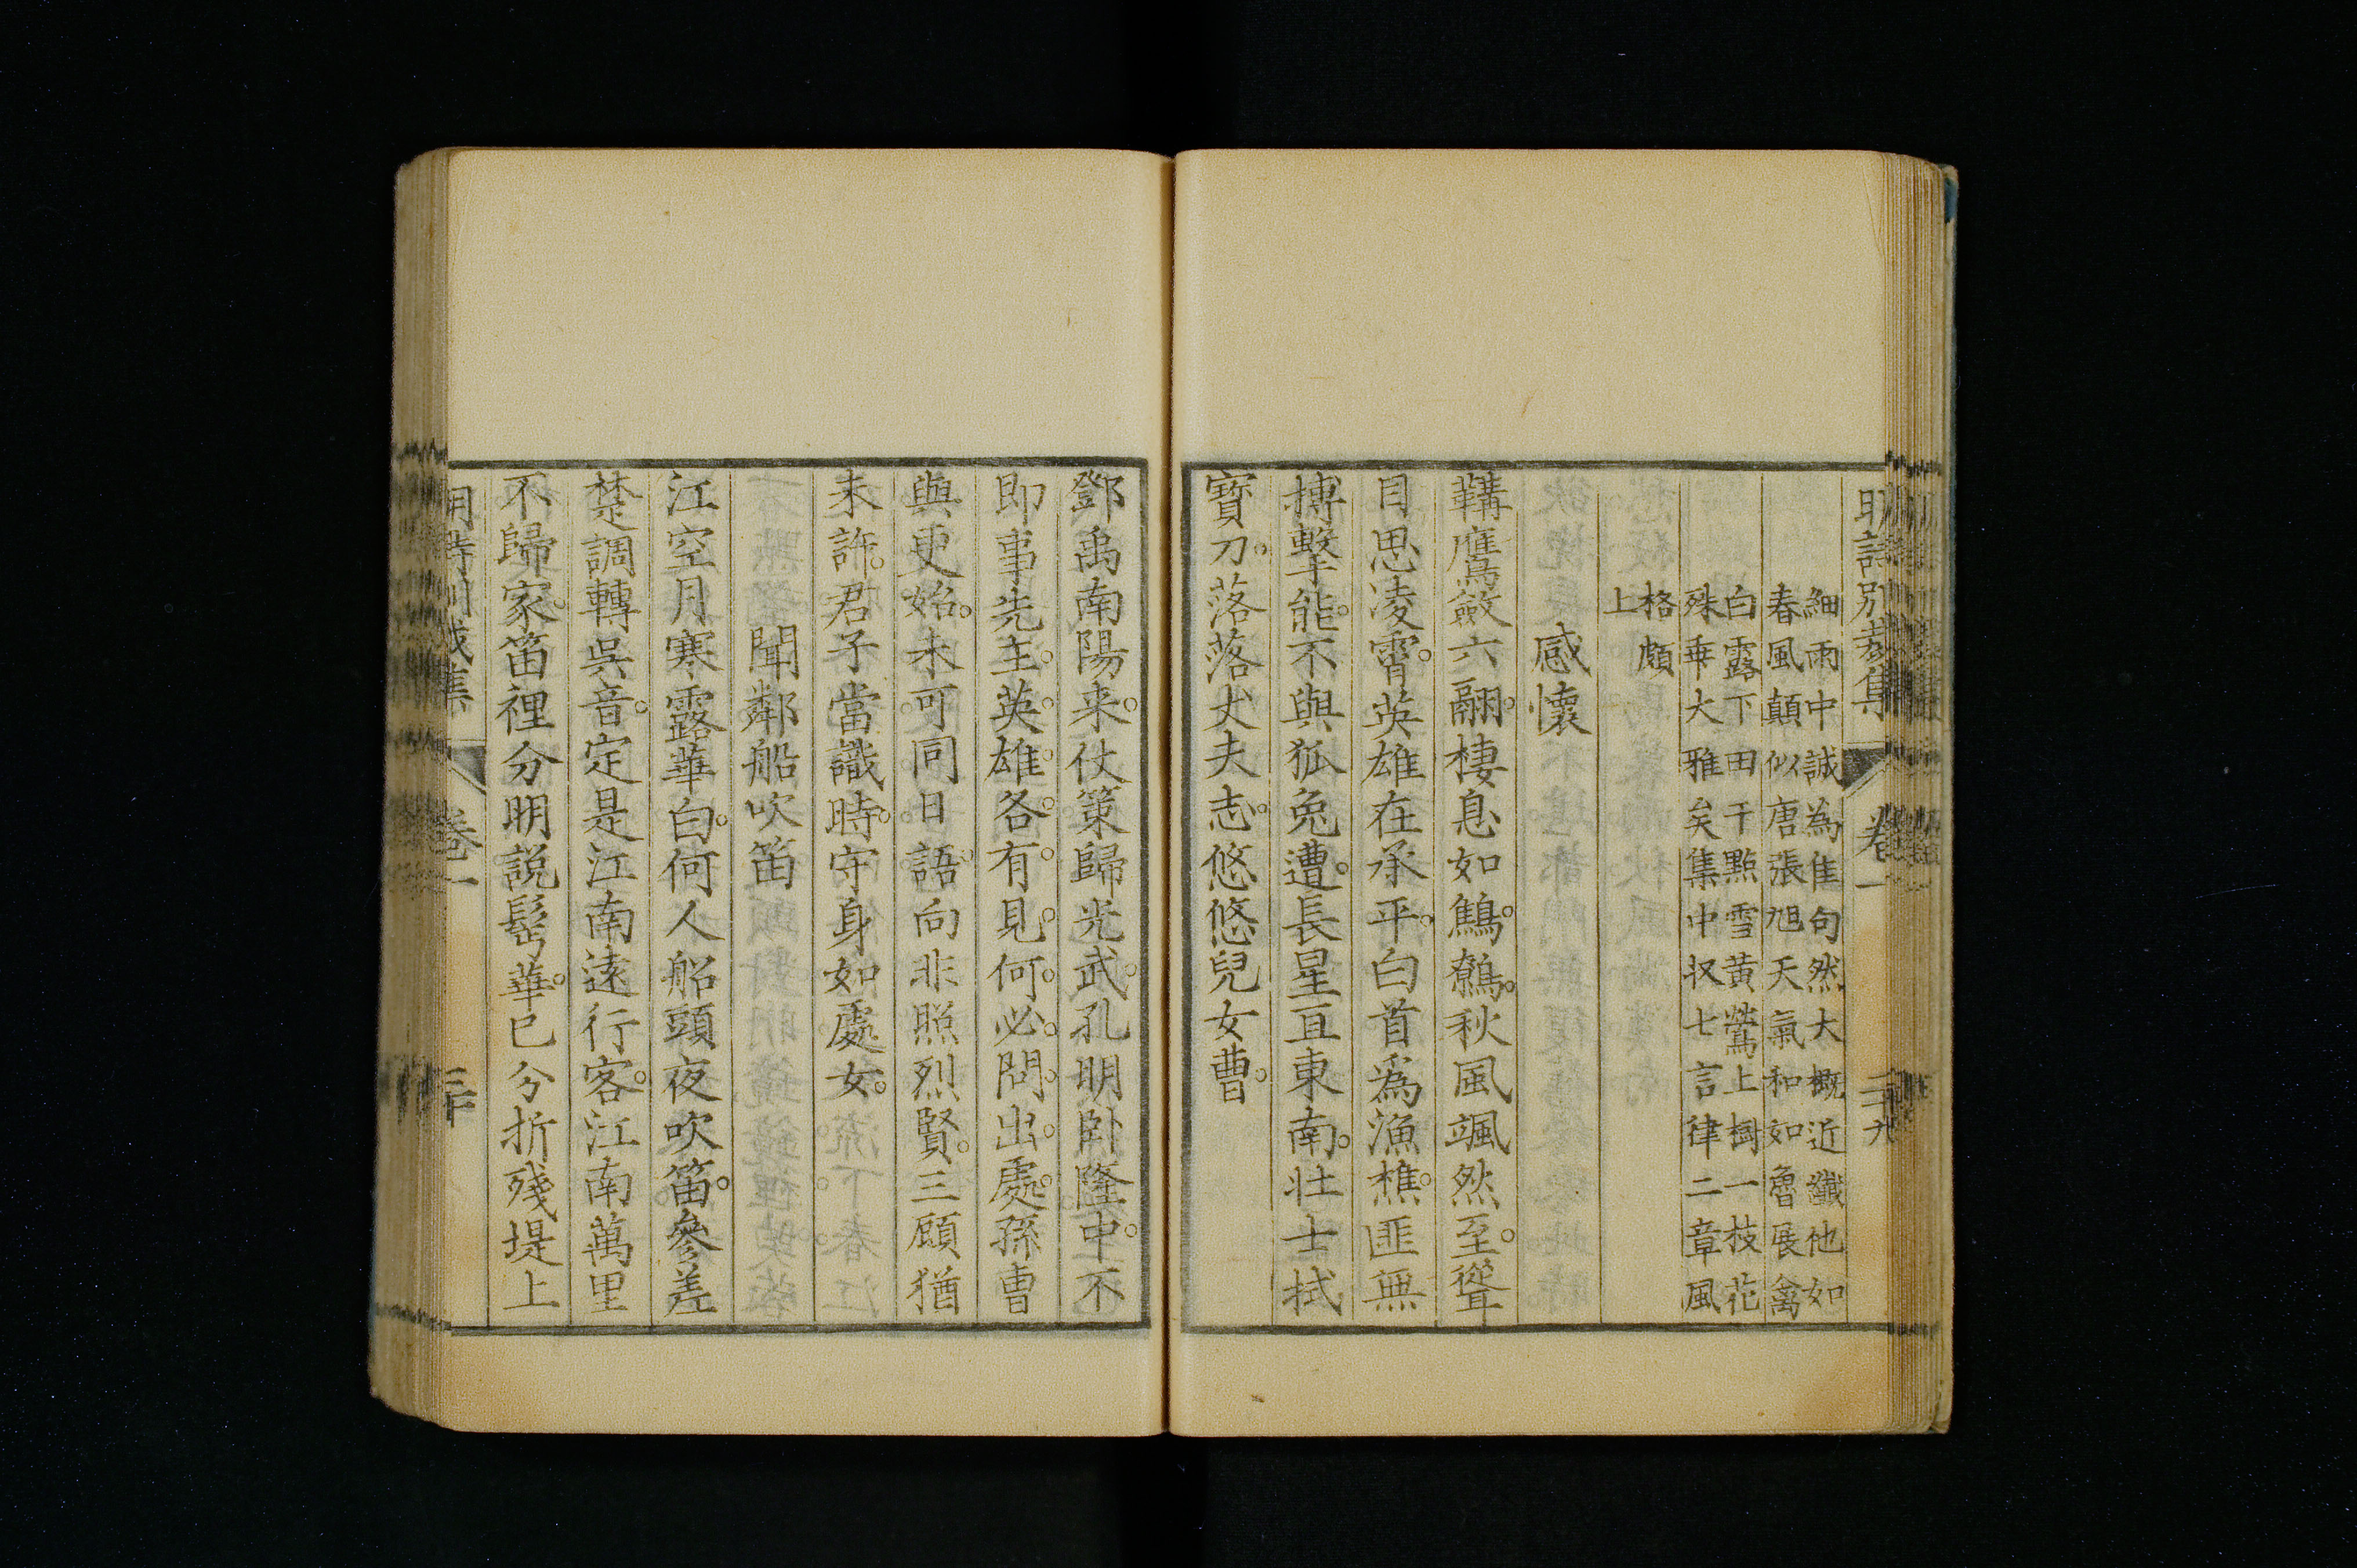 細雨中誠為佳句然大概近纖他如
春風顛似唐張旭天氣和如魯展禽
白露下田千點雪黃鶯上樹一枝花
殊乖大雅矣集中収七言律二章風
格頗
上
感懷
鞲鷹斂六翮棲息如鷦鷯秋風颯然至聳
目思凌霄英雄在承平白首爲漁樵匪無
搏擊能不與狐兔遭長星亘東南壯士拭
寶刀落落丈夫志悠悠兒女曹
鄧禹南陽来仗策歸光武孔明卧隆中不
即事先主英雄各有見何必問出處孫曹
與更始未可同日語向非照烈賢三顧猶
未許君子當識時守身如處女
聞鄰船吹笛
江空月寒露華白何人船頭夜吹笛參差
楚調轉吳音定是江南遠行客江南萬里
不歸家笛裡分明說髩華已分折殘堤上
卷一
三十